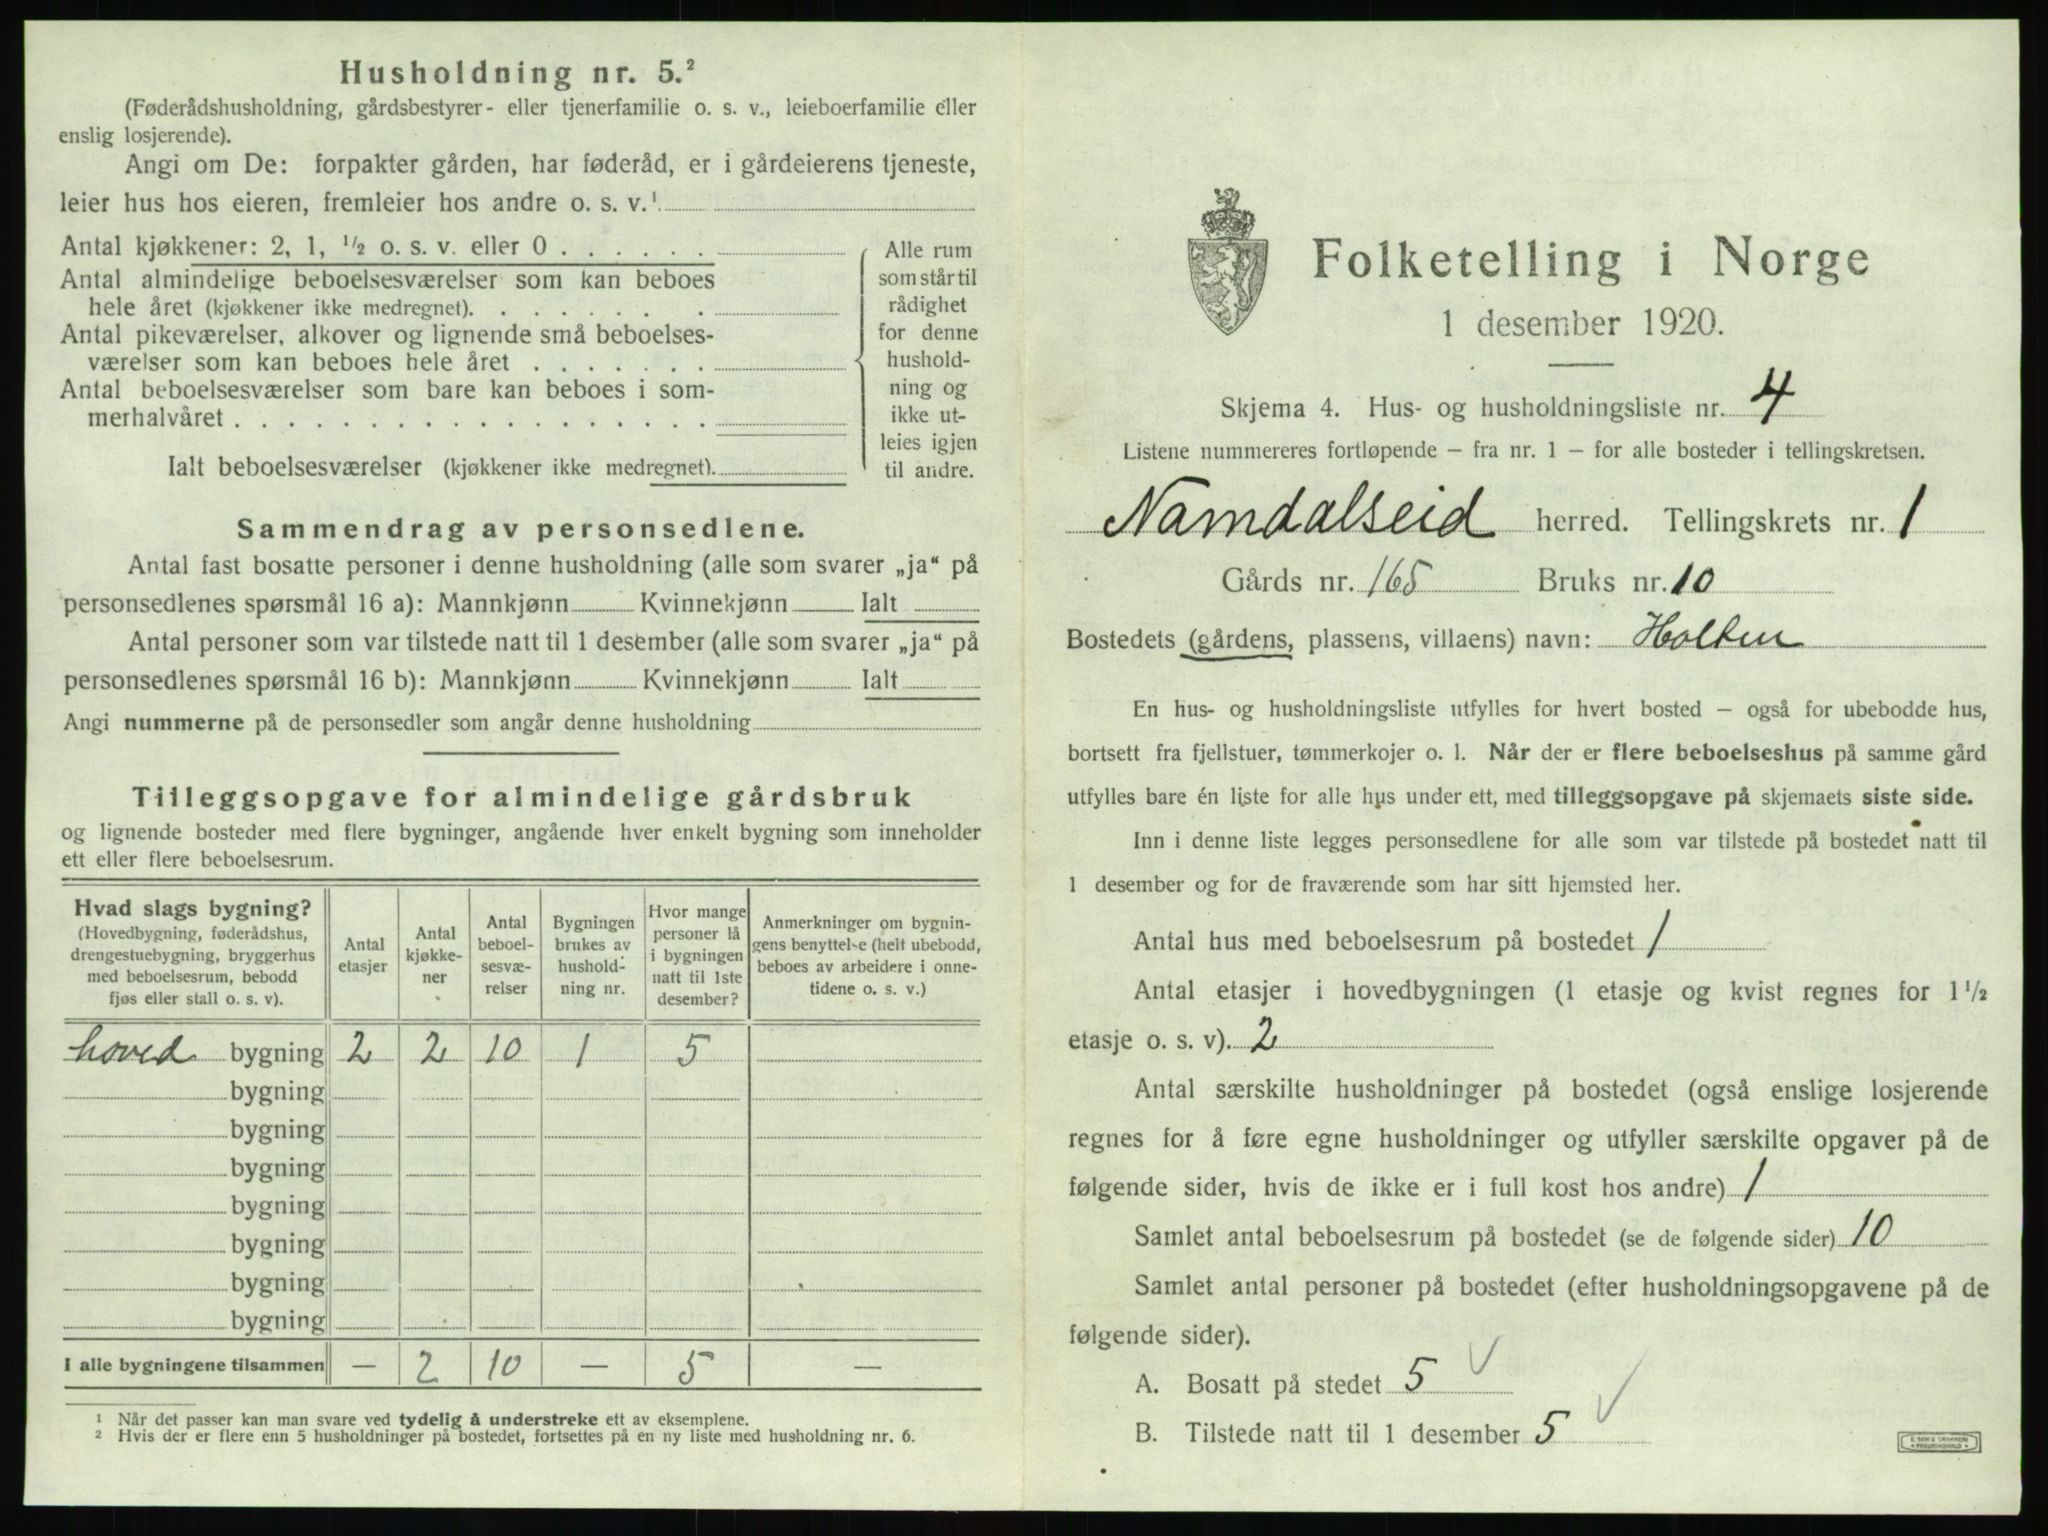 Husholdning nr. 5.²
(Føderådshusholdning, gårdsbestyrer- eller tjenerfamilie o. s. v., leieboerfamilie eller
enslig losjerende).
Angi om De: forpakter gården, har føderåd, er i gårdeierens tjeneste,
leier hus hos eieren, fremleier hos andre o. s. v.¹
Antal kjøkkener: 2, 1, ½ o. s. v. eller 0 . . . . . .
Antal almindelige beboelsesværelser som kan beboes
hele året (kjøkkener ikke medregnet). . . . . . . .
Antal pikeværelser, alkover og lignende små beboelses-
værelser som kan beboes hele året . . . . . . .
Antal beboelsesværelser som bare kan beboes i som-
merhalvåret . . . . . . . . . . . . . . . . . .
Ialt beboelsesværelser (kjøkkener ikke medregnet).
Alle rum
som står til
rådighet
for denne
hushold-
ning og
ikke ut-
leies igjen
til andre.
Sammendrag av personsedlene.
Antal fast bosatte personer i denne husholdning (alle som svarer „ja“ på
personsedlenes spørsmål 16 a): Mannkjønn Kvinnekjønn Ialt
Antal personer som var tilstede natt til 1 desember (alle som svarer „ja“ på
personsedlenes spørsmål 16 b): Mannkjønn Kvinnekjønn Ialt
Angi nummerne på de personsedler som angår denne husholdning
Tilleggsopgave for almindelige gårdsbruk
og lignende bosteder med flere bygninger, angående hver enkelt bygning som inneholder
ett eller flere beboelsesrum.
Hvad slags bygning?
(Hovedbygning, føderådshus,
drengestuebygning, bryggerhus
med beboelsesrum, bebodd
fjøs eller stall o. s. v).
Antal
etasjer
Antal
kjøkke-
ner
Antal
beboel-
sesvæ-
relser
Bygningen
brukes av
hushold-
ning nr.
Hvor mange
personer lå
i bygningen
natt til 1ste
desember?
Anmerkninger om bygnin-
gens benyttelse (helt ubebodd,
beboes av arbeidere i onne-
tidene o. s. v.)
hoved bygning 2 2 10 1 5
bygning
bygning
bygning
bygning
bygning
bygning
bygning
I alle bygningene tilsammen — 2 10 — 5 —
¹ Når det passer kan man svare ved tydelig å understreke ett av eksemplene.
² Hvis der er flere enn 5 husholdninger på bostedet, fortsettes på en ny liste med husholdning nr. 6.
Folketelling i Norge
1 desember 1920.
Skjema 4. Hus- og husholdningsliste nr. 4
Listene nummereres fortløpende – fra nr. 1 – for alle bosteder i tellingskretsen.
Namdalseid herred. Tellingskrets nr. 1
Gårds nr. 165 Bruks nr. 10
Bostedets (gårdens, plassens, villaens) navn: Holten
En hus- og husholdningsliste utfylles for hvert bosted – også for ubebodde hus,
bortsett fra fjellstuer, tømmerkojer o. l. Når der er flere beboelseshus på samme gård
utfylles bare én liste for alle hus under ett, med tilleggsopgave på skjemaets siste side.
Inn i denne liste legges personsedlene for alle som var tilstede på bostedet natt til
1 desember og for de fraværende som har sitt hjemsted her.
Antal hus med beboelsesrum på bostedet 1
Antal etasjer i hovedbygningen (1 etasje og kvist regnes for 1½
etasje o. s. v). 2
Antal særskilte husholdninger på bostedet (også enslige losjerende
regnes for å føre egne husholdninger og utfyller særskilte opgaver på de
følgende sider, hvis de ikke er i full kost hos andre) 1
Samlet antal beboelsesrum på bostedet (se de følgende sider) 10
Samlet antal personer på bostedet (efter husholdningsopgavene på de
følgende sider).
A. Bosatt på stedet 5 ✓
B. Tilstede natt til 1 desember 5 ✓